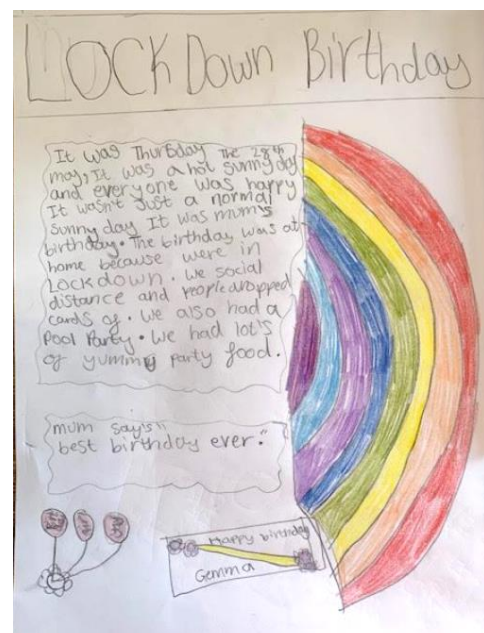 LOCKDOWN Birthday
It was Thursday The 28th
may, It was a hot sunny day
and everyone was happy
It wasn't Just a normal
sunny day It was mum's
birthday. The birthday was at
home because were in
Lockdown. We social
distance and people dropped
cards of. We also had a
Pool Party. We had lot's
of yummy party food.
mum say's "
best birthday ever."
Happy birthday
Gemma